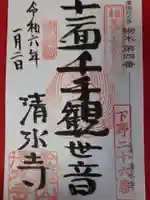 東国花の寺 栃木 第四番
下野二十六番
十一面千手観世音
清水寺
令和六年
一月二日